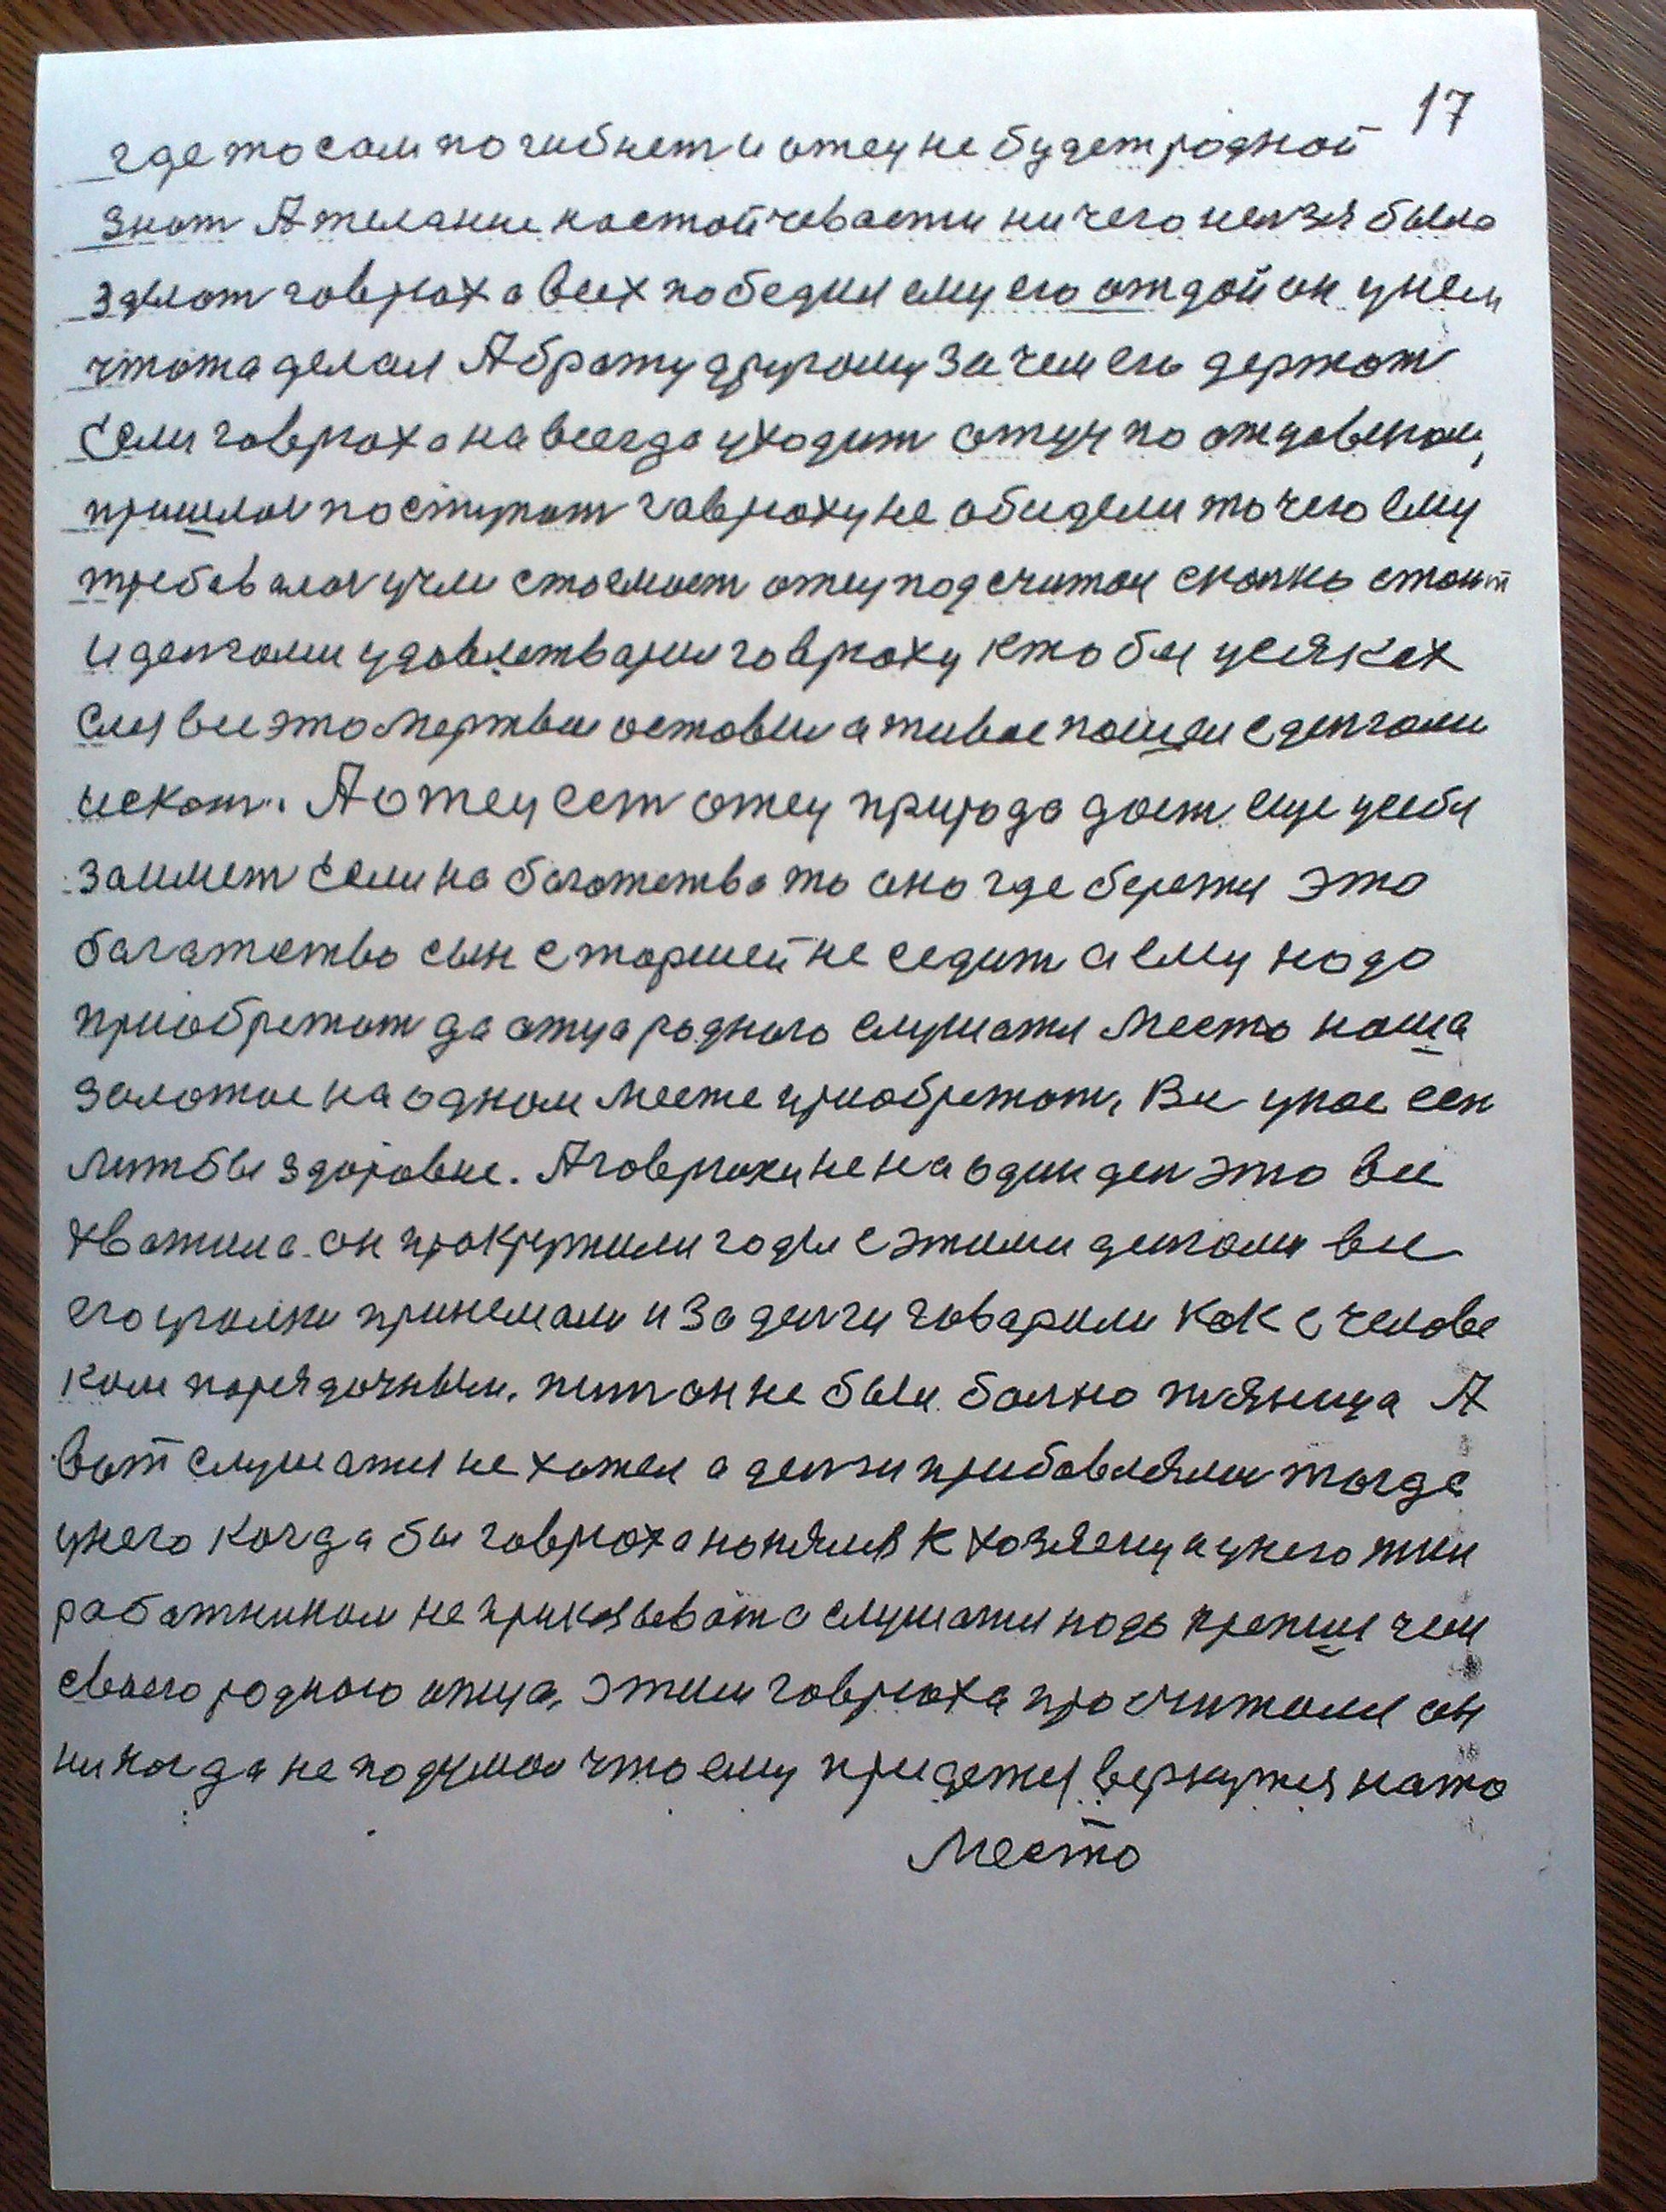 17
где то сам погибнет и отец не будет родной
знат А желание настойчевасти ничего нелзя было
зделат говрюха всех победил ему его отдой он у нем
чтота делал А брату другому зачем его держат
Если говрюха навсегда уходит отцу по
пришлос поступат гаврюху не обидели то чего ему
требавалос учли стоемост отец подсчитал сколко стоит
и денгами удовлетварил говрюху кто бы у всяких
слез все это мертвы оставил а живое пошел с денгами
искат. А отец ест отец природа дает еще у себя
заимет Если на богатетва то оно где бережи это
багатетво сын старшей не седит а ему надо
приобретат да отца родного слушатя место наша
золотое на одном месте приобретат, Все у нас есть
лит бы здоровие. А говрюхи не на один ден это все
хватила он прокружил годы с этими денгами все
его принемали и за денги говарили как с челове
ком порядочным. пит он не был болно пяница А
вот слушатя не хотел а денги прибавлялис тогда
у него когда бы говрюха нонялся к хозяену а у него жил
работником не приказывают а слушатя нодо крепше чем
своего родного отца, этим говрюха просчитался он
никогда не подумал что ему придется вернутя на то
место